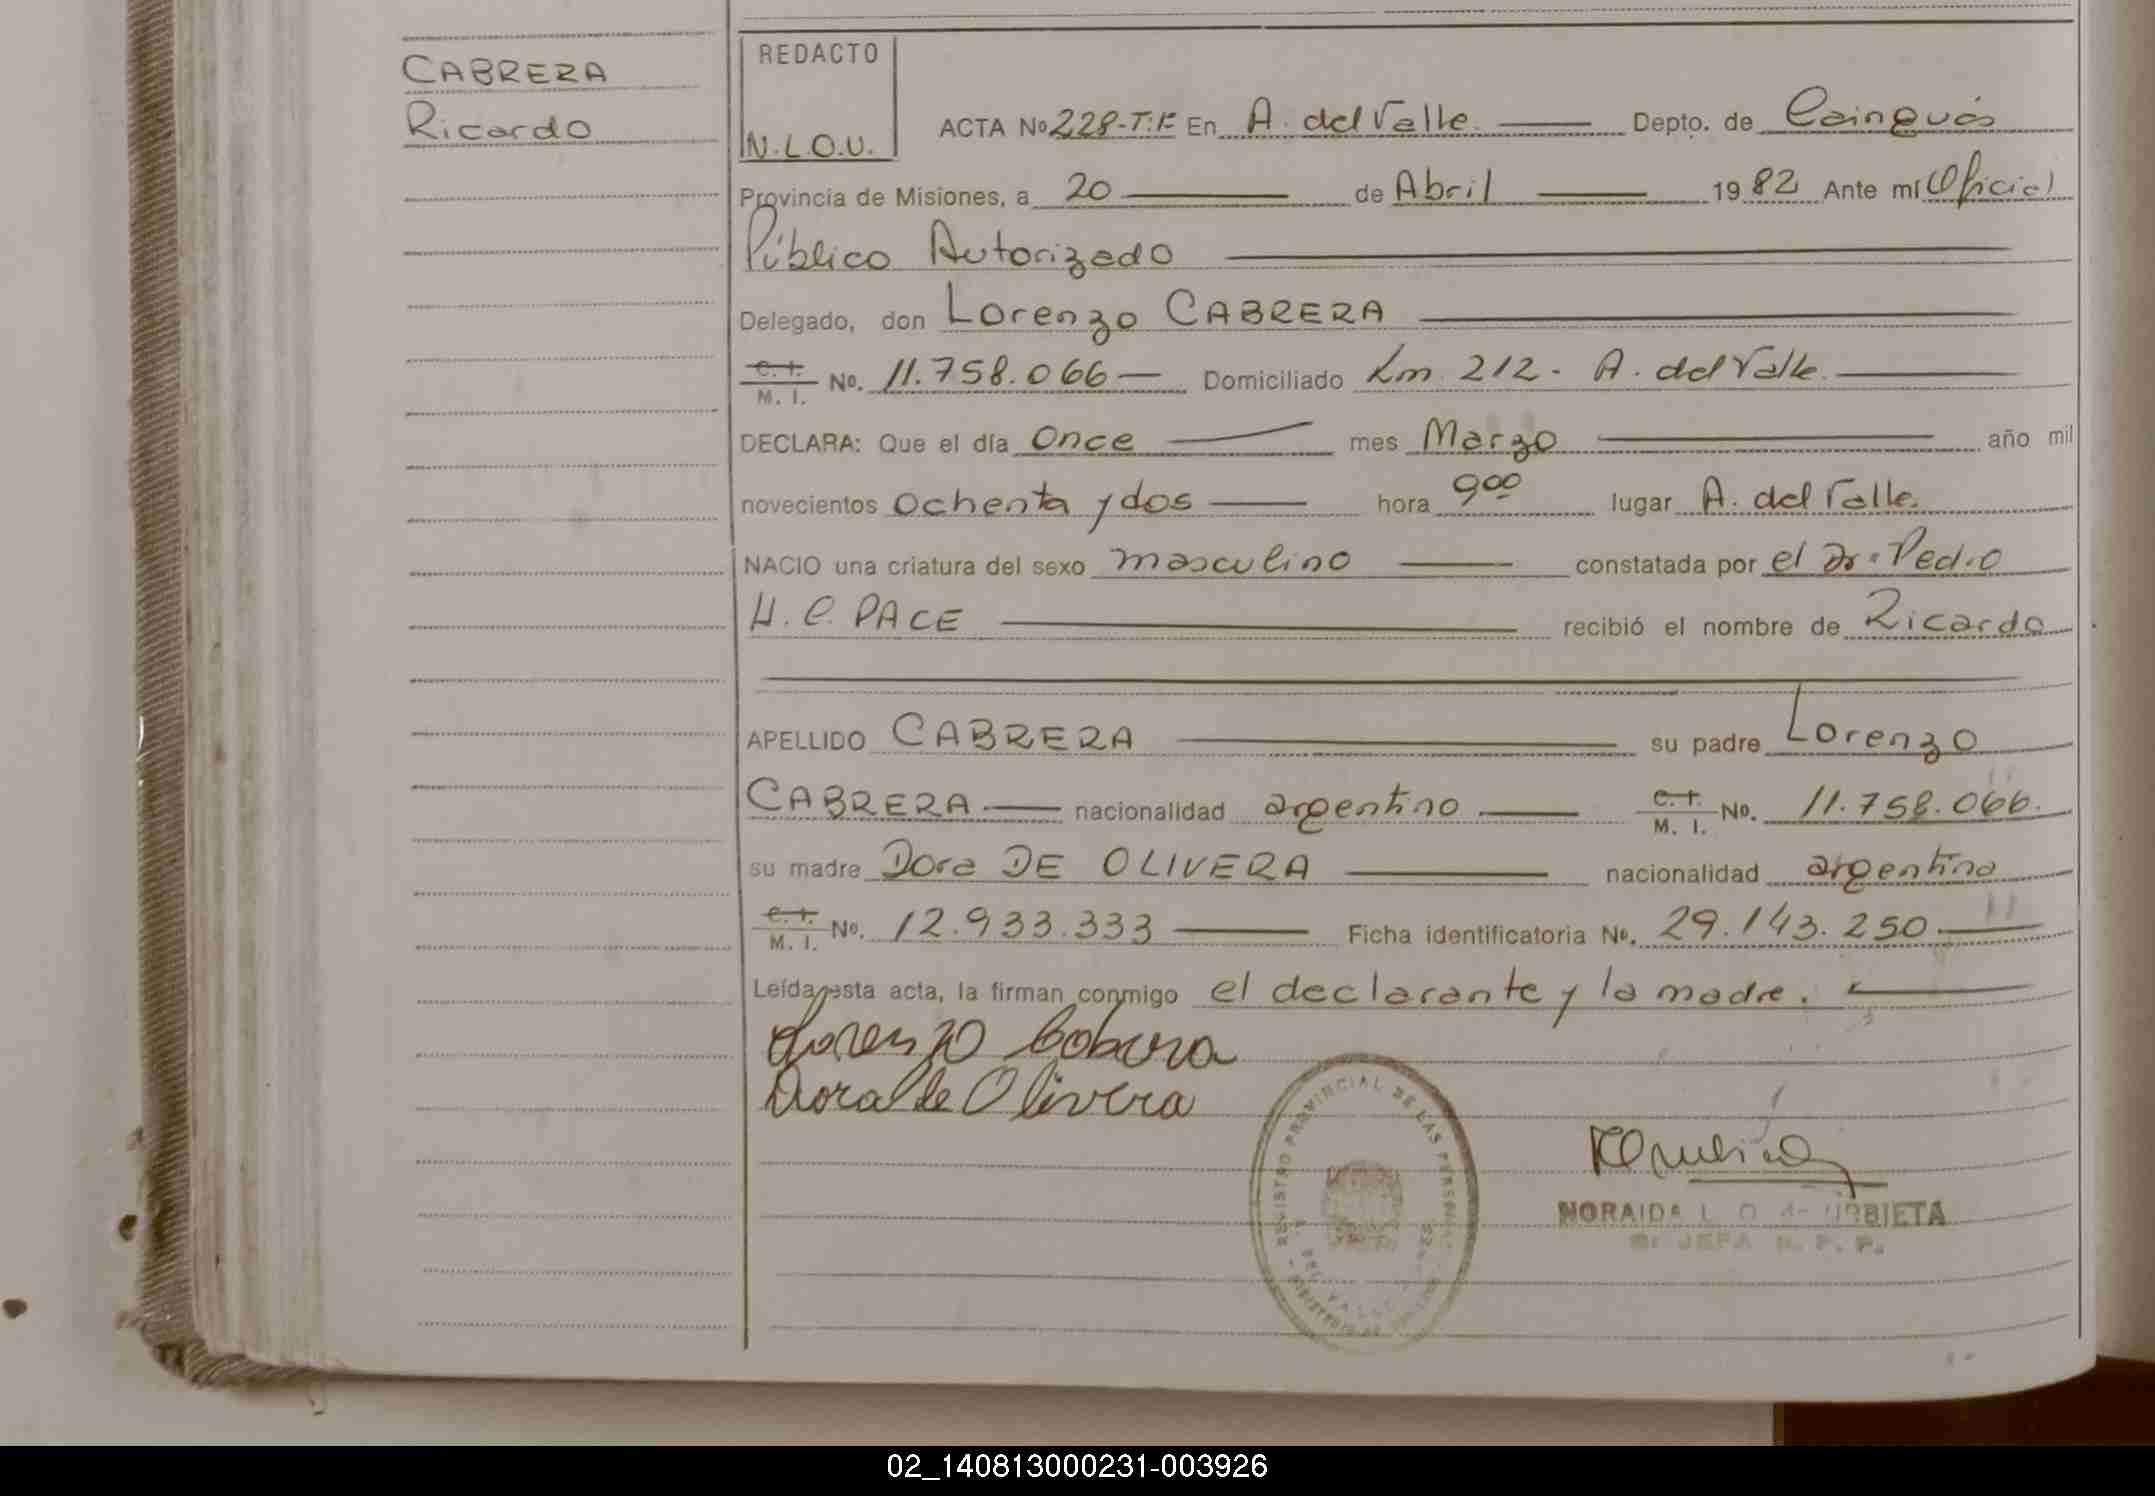 CABRERA
Ricardo
REDACTO
N.L.O.U.
ACTA Nº 228-T:F En A. del Valle. Depto. de Cainguás
Provincia de Misiones, a 20 de Abril 1982 Ante mí Oficial
Público Autorizado
Delegado, don Lorenzo CABRERA
C. I. M. I. Nº. 11.758.066 Domiciliado Km 212. A. del Valle.
DECLARA: Que el día Once mes Marzo año mil
novecientos ochenta y dos hora 9 00 lugar A. del Valle.
NACIO una criatura del sexo masculino constatada por el Dr. Pedro
H. C. PACE recibió el nombre de Ricardo
APELLIDO CABRERA su padre Lorenzo
CABRERA nacionalidad argentino C. I. M. I. Nº. 11.758.066.
su madre Dora DE OLIVERA nacionalidad argentina
C. I. M. I. Nº. 12.933.333 Ficha identificatoria Nº. 29.143.250
Leída esta acta, la firman conmigo el declarante y la madre.
Lorenzo Cabrera
Dora de Olivera
REGISTRO PROVINCIAL DE LAS PERSONAS
NORAIDA L. O. de URBIETA
JEFA R. P. P.
02_140813000231-003926